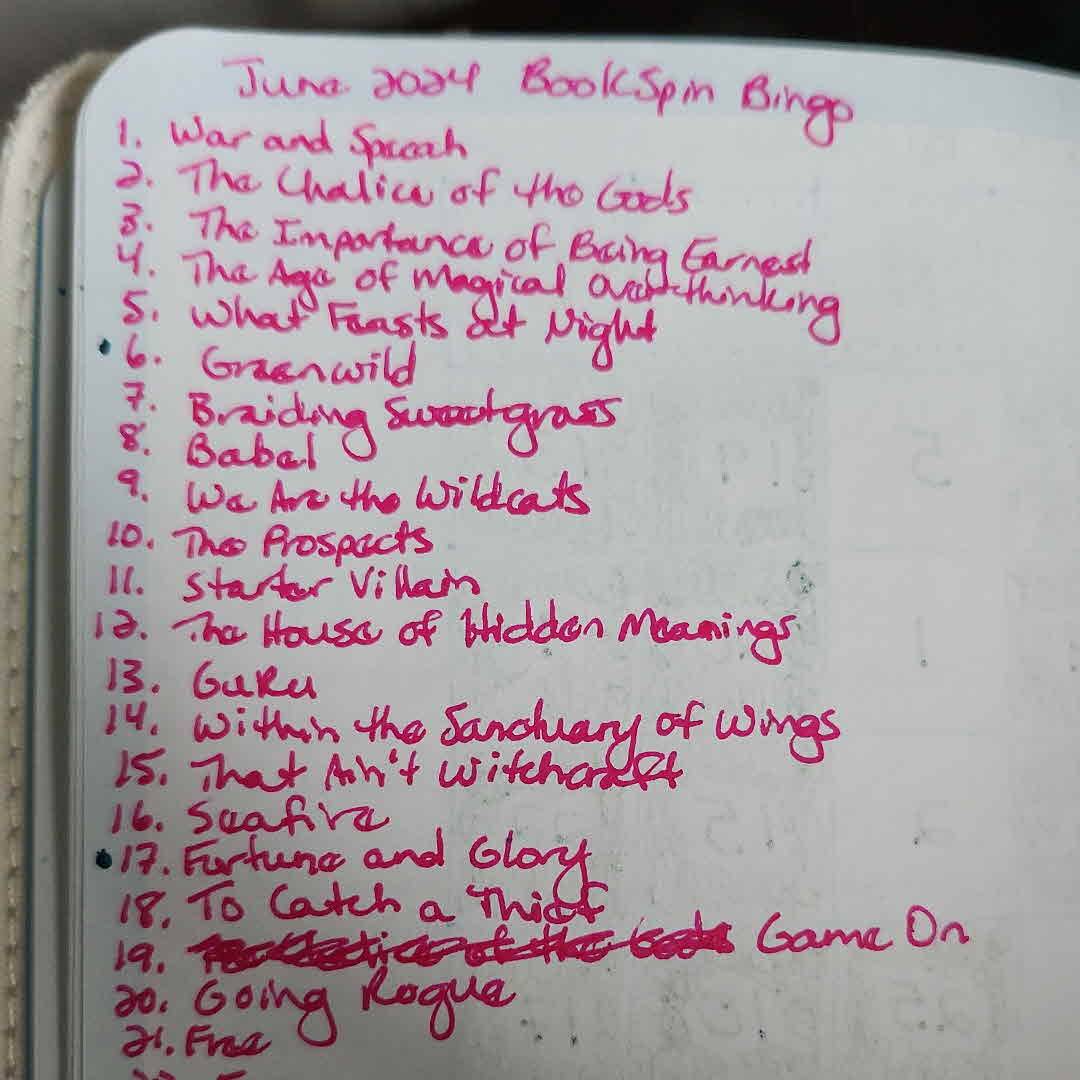 June 2024 BookSpin Bingo
1. War and Speech
2. The Chalice of the Gods
3. The Importance of Being Earnest
4. The Age of Magical Overthinking
5. What Feasts at Night
6. Greenwild
7. Braiding Sweetgrass
8. Babel
9. We Are the Wildcats
10. The Prospects
11. Starter Villain
12. The House of Hidden Meanings
13. GuRu
14. Within the Sanctuary of Wings
15. That Ain't Witchcraft
16. Seafire
17. Fortune and Glory
18. To Catch a Thief
19. Game On
20. Going Rogue
21. Free